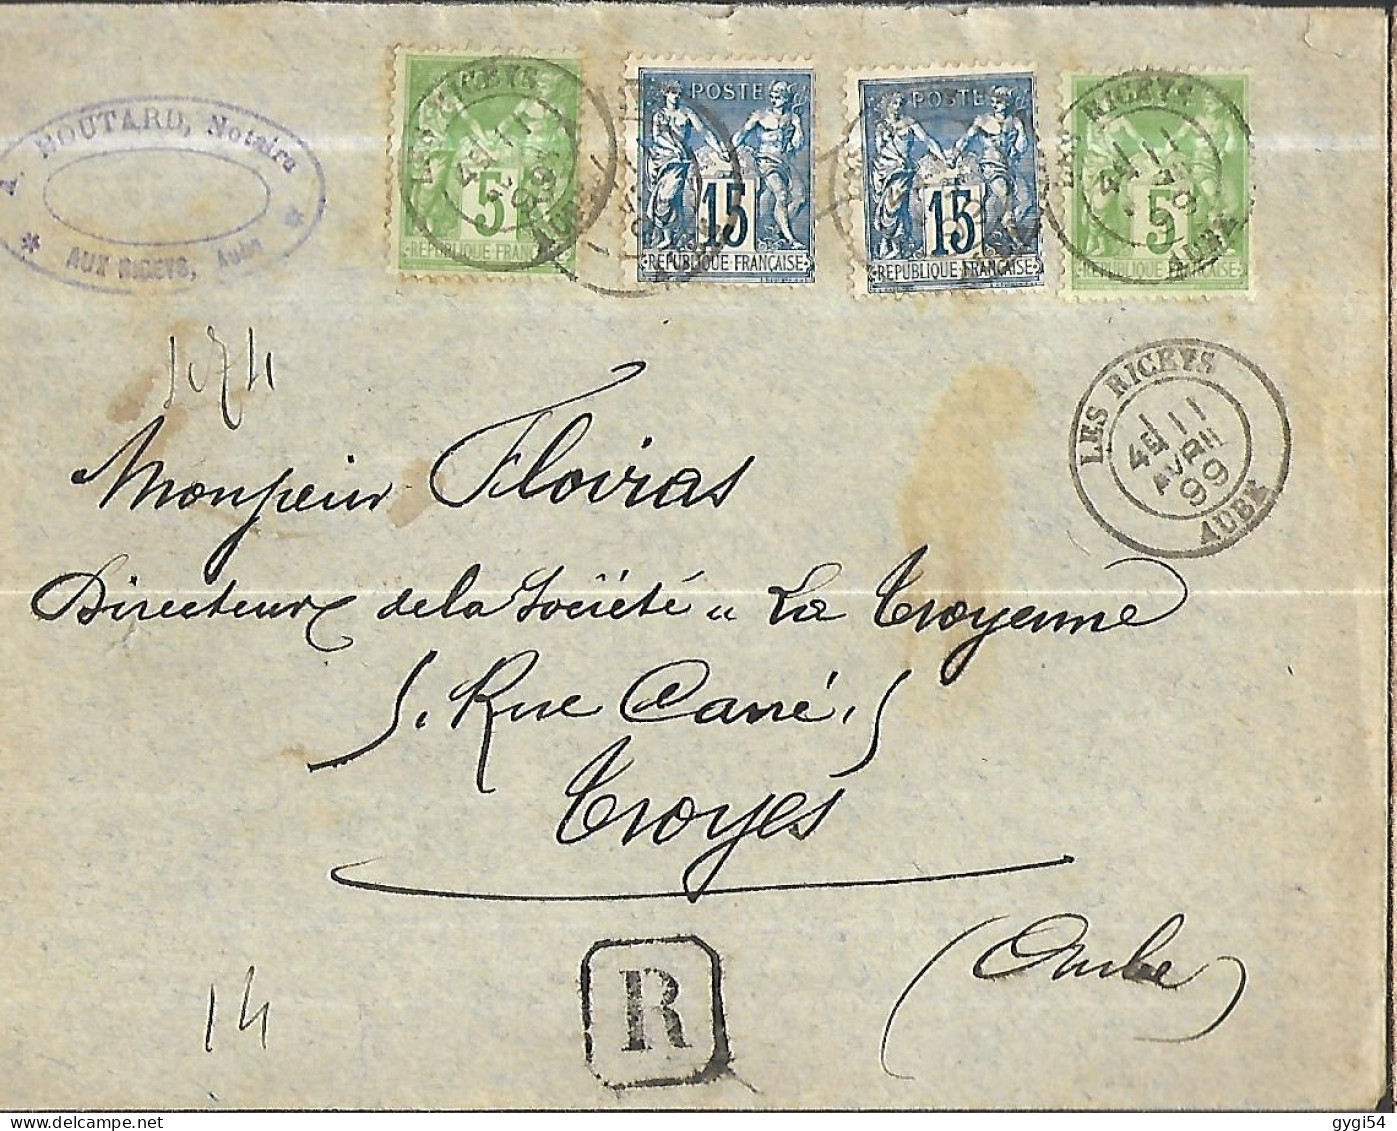 MOUTARD, Notaire
AUX RICEYS, Aube
LES RICEYS
AUBE
5
REPUBLIQUE FRANÇAISE
POSTE
15
REPUBLIQUE FRANÇAISE
POSTE
15
REPUBLIQUE FRANÇAISE
LES RICEYS
AUBE
5
REPUBLIQUE FRANÇAISE
LES RICEYS
4E 11
AVRIL
99
AUBE
Monsieur Floiras
Directeur de la Société " La Troyenne
5. Rue Carré. 5
Troyes
(Aube)
14
R
gygi54